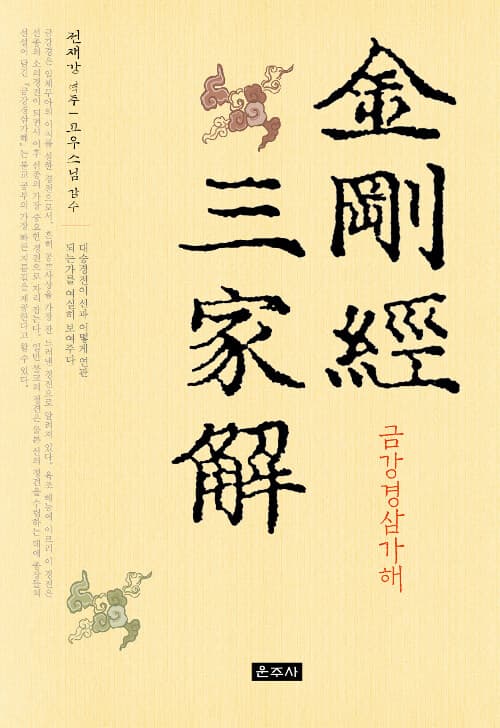 金剛經
三家解
금강경삼가해
전재강 역주 - 고우스님 감수
대승경전이 선과 어떻게 연관
되는가를 여실히 보여주다
금강경은 일체무아의 이치를 설한 경전으로서, 흔히 공사상을 가장 잘 드러낸 경전으로 알려져 있다. 육조 혜능에 이르러 이 경전은
선종의 소의경전이 되면서 이후 선종의 가장 중요한 경전으로 자리 잡는다. 일반 불교의 정견은 물론 선의 정견을 수립하는 데에
선설이 담긴 『금강경삼가해』는 불교 공부의 가장 빠른 지름길을 제공한다고 할 수 있다.
운주사